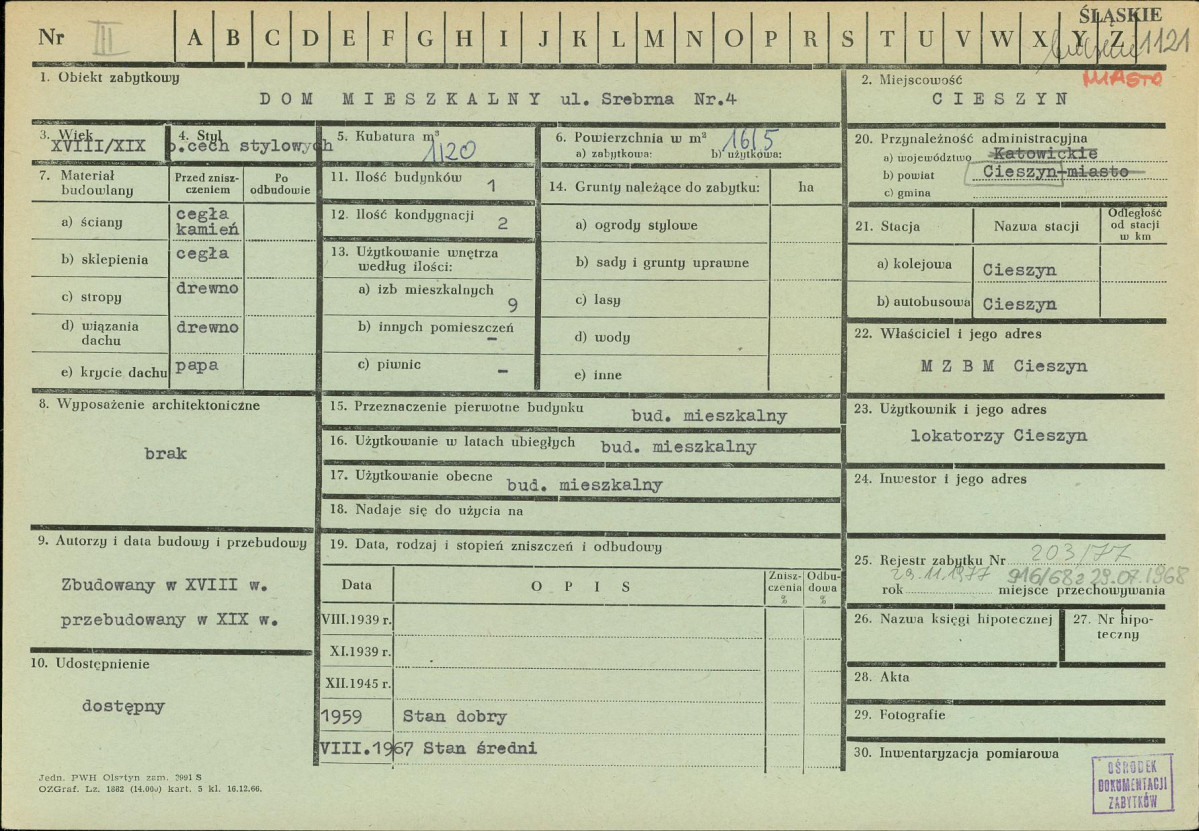 ŚLĄSKIE
Nr III A B C D E F G H I J K L M N O P R S T U V W X Y Z 1121
MIASTO
1. Obiekt zabytkowy
DOM MIESZKALNY ul. Srebrna Nr.4
2. Miejscowość
CIESZYN
3. Wiek
XVIII/XIX
4. Styl
b.cech stylowych
5. Kubatura m³
1120
6. Powierzchnia w m² 1615
a) zabytkowa: b) użytkowa:
7. Materiał budowlany
Przed zniszczeniem
Po odbudowie
a) ściany cegła kamień
b) sklepienia cegła
c) stropy drewno
d) wiązania dachu drewno
e) krycie dachu papa
8. Wyposażenie architektoniczne
brak
9. Autorzy i data budowy i przebudowy
Zbudowany w XVIII w.
przebudowany w XIX w.
10. Udostępnienie
dostępny
11. Ilość budynków 1
12. Ilość kondygnacji 2
13. Użytkowanie wnętrza
według ilości:
a) izb mieszkalnych 9
b) innych pomieszczeń –
c) piwnic –
14. Grunty należące do zabytku: ha
a) ogrody stylowe
b) sady i grunty uprawne
c) lasy
d) wody
e) inne
15. Przeznaczenie pierwotne budynku bud. mieszkalny
16. Użytkowanie w latach ubiegłych bud. mieszkalny
17. Użytkowanie obecne bud. mieszkalny
18. Nadaje się do użycia na
19. Data, rodzaj i stopień zniszczeń i odbudowy
Data OPIS Zniszczenia % Odbudowa %
VIII.1939 r.
XI.1939 r.
XII.1945 r.
1959 Stan dobry
VIII.1967 Stan średni
20. Przynależność administracyjna
a) województwo Katowickie
b) powiat Cieszyn-miasto
c) gmina
21. Stacja Nazwa stacji Odległość od stacji w km
a) kolejowa Cieszyn
b) autobusowa Cieszyn
22. Właściciel i jego adres
MZBM Cieszyn
23. Użytkownik i jego adres
lokatorzy Cieszyn
24. Inwestor i jego adres
25. Rejestr zabytku Nr 203/77
29.11.1977 916/68 z 29.07.1968
rok miejsce przechowywania
26. Nazwa księgi hipotecznej
27. Nr hipoteczny
28. Akta
29. Fotografie
30. Inwentaryzacja pomiarowa
OŚRODEK
DOKUMENTACJI
ZABYTKÓW
Jedn. PWH Olsztyn zam. 2991 S
OZGraf. Lz. 1882 (14.000) kart. 5 kl. 16.12.66.